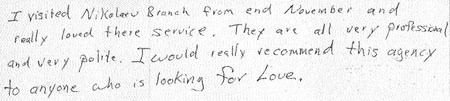 I visited Nikolaev Branch from end November and
really loved there service. They are all very professional
and very polite. I would really recommend this agency
to anyone who is looking for Love.